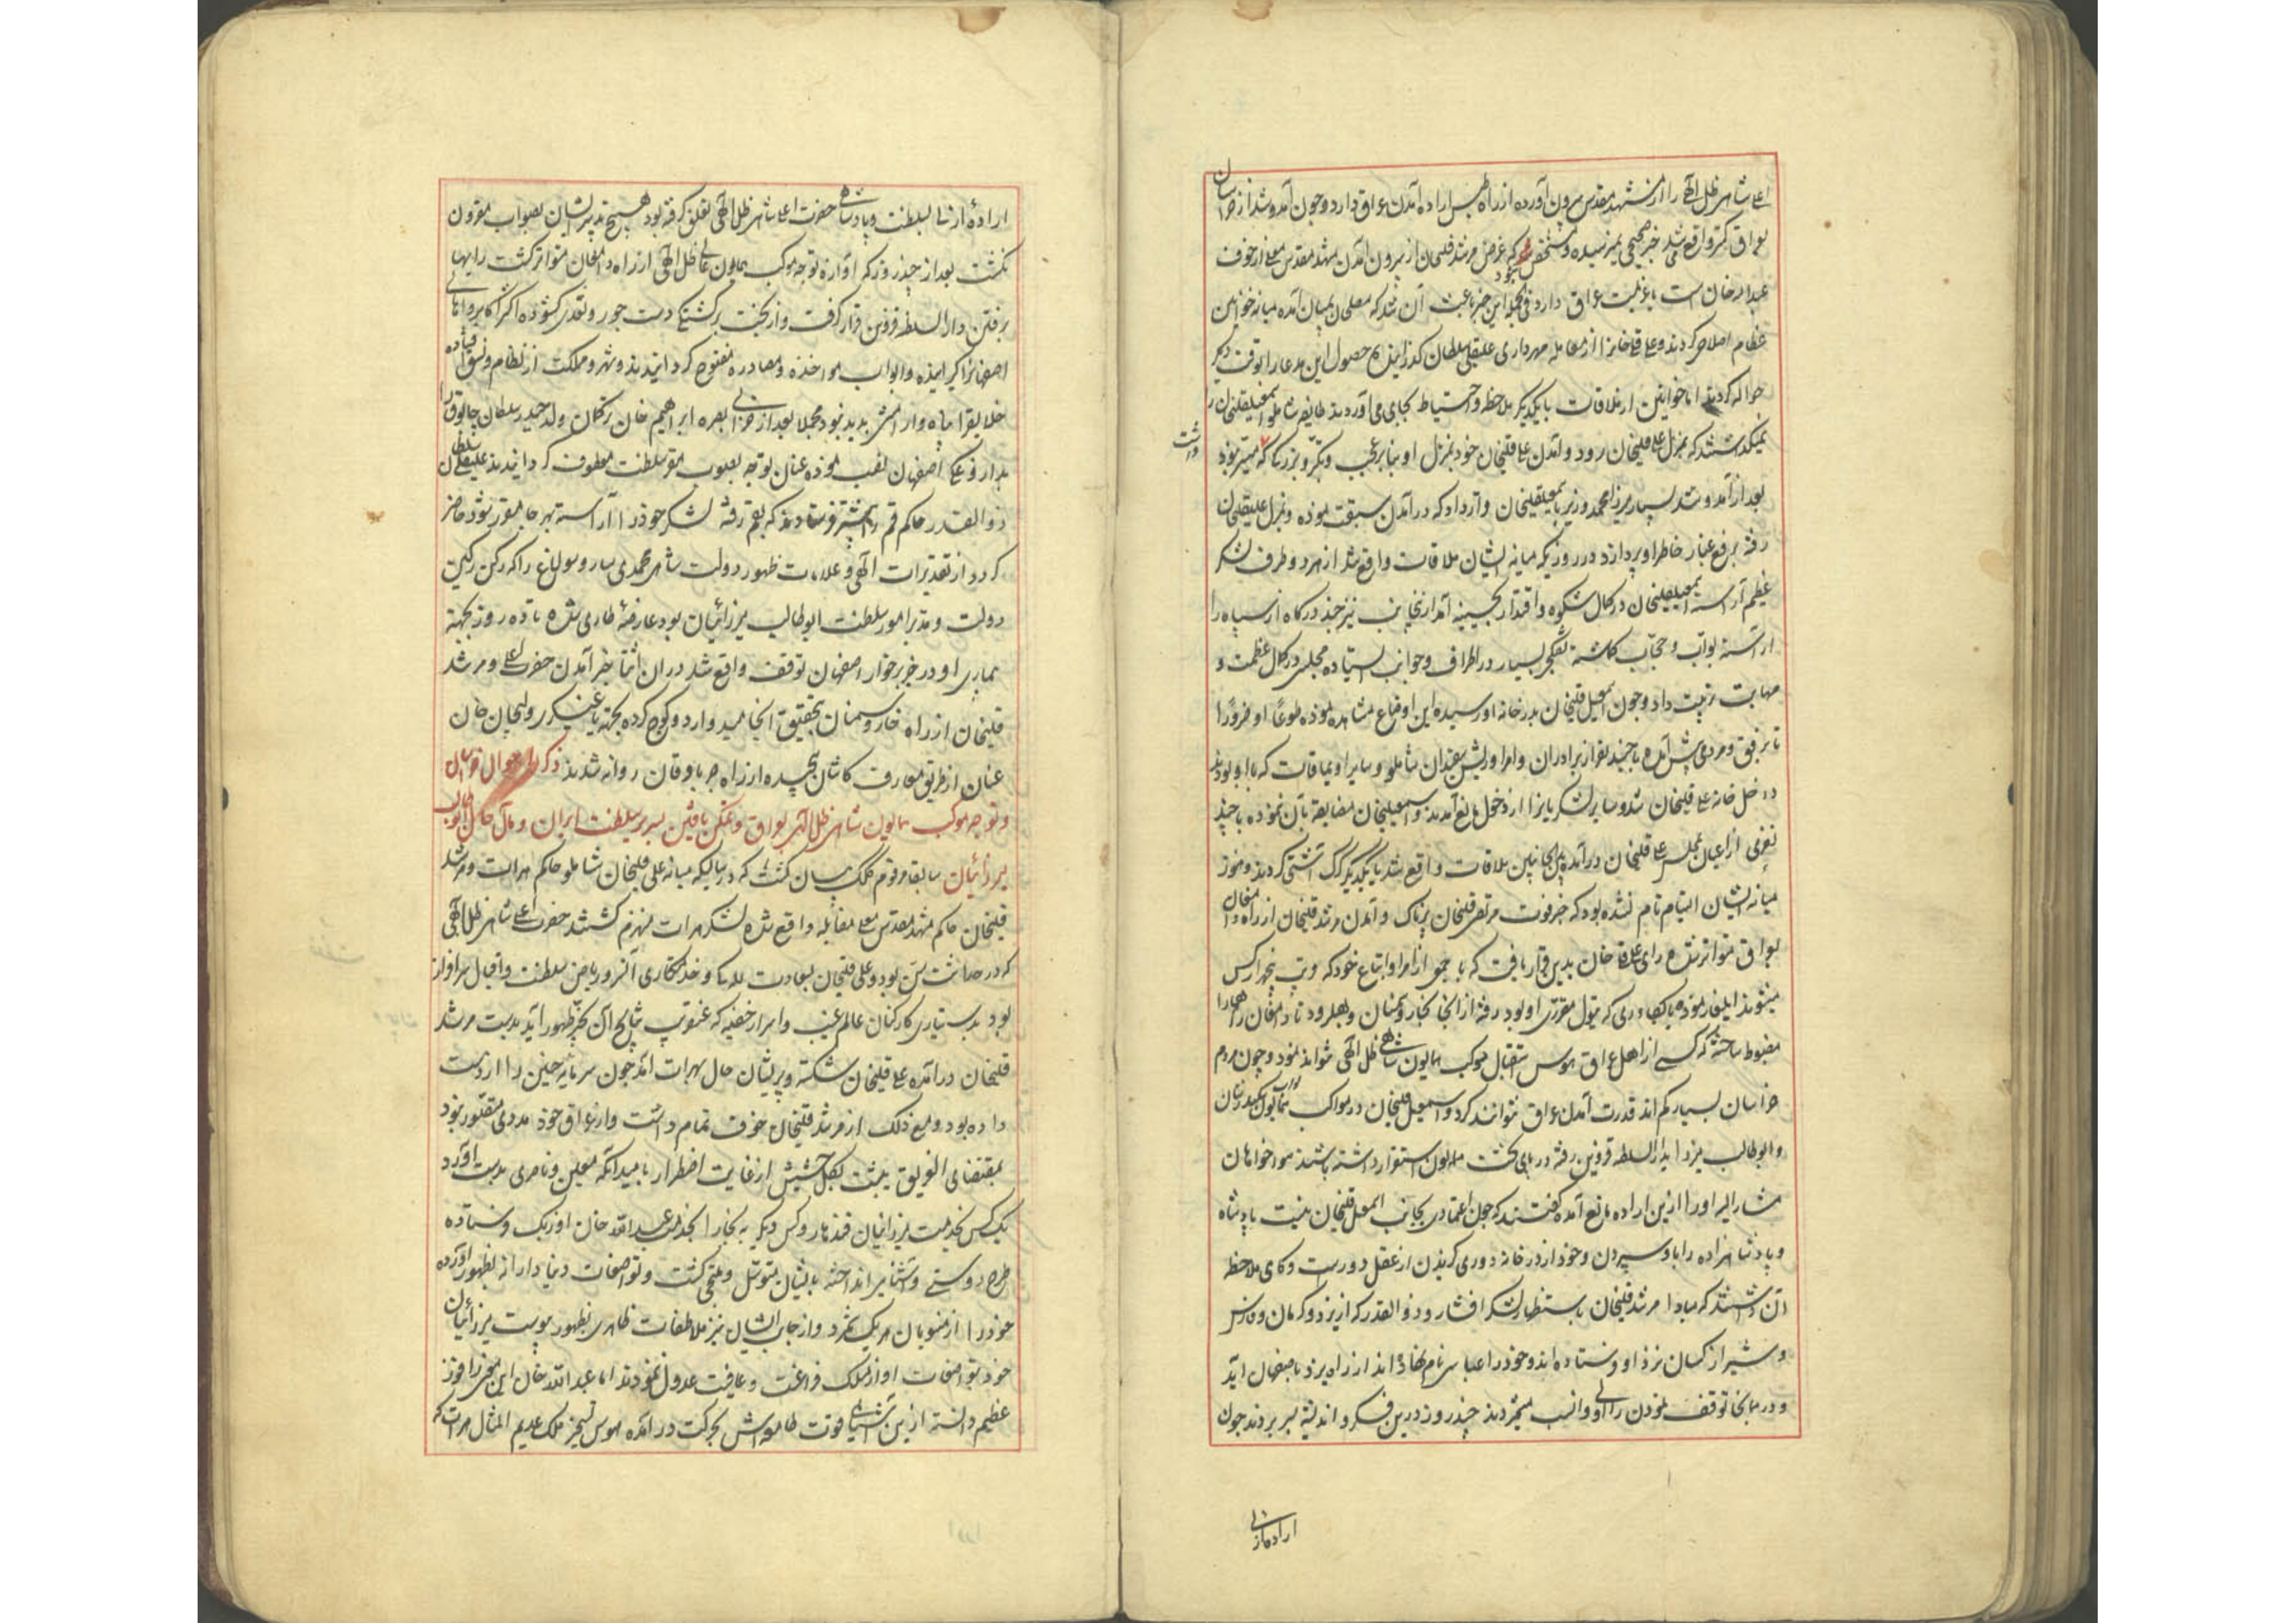 اعلی شاهی ظل الهی را از مشهد مقدس بیرون آورده از راه طبس اراده آمدن عراق دارد و چون آمد و شد از خراسان
بعراق کمتر واقع می شد خبر صحیحی نمیرسید و مشخص نبود که غرض مرشد قلیخان از بیرون آمدن مشهد مقدس معلی از خوف
عبدالله خان است یا عزیمت عراق دارد فی الجمله این خبر باعث آن شد که مصلحان بمیان آمده میانه خوانین
عظام اصلاح کردند و علی قلیخان را از معامله مهرداری علیقلی سلطان گذرانیده حصول این مدعا را بوقت دیگر
حواله کردند اما خوانین از ملاقات یکدیگر ملاحظه و احتیاط بجای می آوردند طایفه شاملو اسمعیلقلیخان را
نمیگذاشتند که بمنزل علی قلیخان رود و آمدن علی قلیخان خود بمنزل او بنابر عجب و تکبر و بزرگی که میسر نبود
داشت
بعد از آمد و شد بسیار میرزا محمد وزیر باسمعیلقلیخان قرار داد که در آمدن سبقت نموده و بمنزل علیقلیخان
رفته برفع غبار خاطر او پردازد در روزیکه میانه ایشان ملاقات واقع شد از هر دو طرف لشکر
عظیم آراسته اسمعیلقلیخان در کمال شکوه و اقتدار بحسینیه آمد از آنجانب نیز جذر درگاه از سپاه را
آراسته بواب و حجاب گماشته تفنگچی بسیار در اطراف و جوانب ایستاده مجلس در کمال عظمت و
مهابت ترتیب داد و چون اسمعیل قلیخان بدر خانه او رسیده این اوضاع مشاهده نموده طوعا او کرها
با رفیق و مردمی پیش آمده با چند نفر از برادران و امرا و ریش سفیدان شاملو و سایر اویماقات که با او بودند
داخل خانه علی قلیخان شد و سایر لشکریانرا از دخول مانع آمدند و اسمعیلخان مضایقه بآن نموده با چند
نفری از اعیان بمجلس علی قلیخان درآمد بین الجانبین ملاقات واقع شد با یکدیگر گرگ آشتی کردند و هنوز
میانه ایشان التیام تام نشده بود که خبر فوت مرتضی قلیخان پرناک و آمدن مرشد قلیخان از راه دامغان
بعراق متواتر شد رای علی قلیخان بدین قرار یافت که با جمعی از امرا و اتباع خود که قریب پنجهزار کس
میشوند ایلغار نموده بالکهاء ری که تیول مقرری او بود رفته از آنجا بخوار و سمنان و هبلرود تا دامغان راهها را
مضبوط ساخته که کسی از اهل عراق هوس استقبال موکب همایون شاهی ظل الهی نتواند نمود و چون مردم
خراسان بسیار کم اند قدرت آمدن عراق نتوانند کرد و اسمعیل قلیخان در مواکب نواب همایون سکندر شان
و ابوطالب میرزا بدارالسلطنه قزوین رفته در پای تخت همایون استقرار داشته باشند هواخواهان
مشارالیه او را ازین اراده مانع آمده گفتند که چون اعتمادی بجانب اسمعیل قلیخان نیست پادشاه
و پادشاهزاده را باو سپردن و خود از در خانه دوری گزیدن از عقل دور است و گاهی ملاحظه
آن داشتند که مبادا مرشد قلیخان باستظهار لشکر افشار و ذوالقدر که از یزد و کرمان و فارس
و شیراز کسان نزد او فرستاده اند و خود را عباسی نام نهاده اند از راه یزد باصفهان آید
و در همانجا توقف نمودن را اولی و انسب میشمردند چند روز درین فکر و اندیشه بسر بردند چون
اراده ازلی
اراده ازلی بسلطنت و پادشاهی حضرت اعلی شاهی ظل الهی تعلق گرفته بود هیچ تدبیر ایشان بصواب مقرون
نگشت بعد از چند روز که آوازه توجه موکب همایون عالی ظل الهی از راه دامغان متواتر گشت رایها
برفتن دارالسلطنه قزوین قرار گرفت و از بخت برگشتگی دست جور و تعدی گشوده اکثر اکابر و اهالی
اصفهانرا گیرانیده و ابواب مواخذه و مصادره مفتوح گردانیدند و شهر و مملکت از نظام و نسق افتاده
خلایق را پناه و آرامش پدید نبود مجملا بعد از خرابی بصره ابراهیم خان ترکمان ولد حیدر سلطان چابوق را
بداروغگی اصفهان نصب نموده عنان توجه بصوب مقر سلطنت معطوف گردانیدند علیقلی سلطان
ذوالقدر حاکم قم را پیشتر فرستادند که بقم رفته لشکر خود را آراسته بهر جا مقرر شود حاضر
گردد از تقدیرات الهی و علامات ظهور دولت شاهی محمدی ساروسولاغ را که رکن رکین
دولت و مدبر امور سلطنت ابوطالب میرزائیان بود عارضه طاری شده تا ده روز بجهة
بیماری او در خر برخوار اصفهان توقف واقع شد در آن اثنا خبر آمدن حضرت اعلی و مرشد
قلیخان از راه خوار و سمنان بتحقیق انجامید و اردو کوچ کرده بجهة یاغیگری ولیجان خان
عنان از طریق متعارف کاشان پیچیده از راه جرباوقان روانه شدند ذکر احوال خراسان
و توجه موکب همایون شاهی ظل اللهی بعراق و تمکن یافتن بسریر سلطنت ایران و مآل حال ابوطالب
میرزائیان سابقا مرقوم کلک بیان گشت که در سالیکه میانه علی قلیخان شاملو حاکم هرات و مرشد
قلیخان حاکم مشهد مقدس معلی مقابله واقع شده لشکر هرات منهزم گشتند حضرت اعلی شاهی ظل الهی
که در حداثت سن بود و علی قلیخان بسعادت للگی و خدمتکاری آن سرو ریاض سلطنت و اقبال سرافراز
بود بدستیاری کارکنان عالم غیب و اسرار خفیه که عنقریب نتایج آن بحیز ظهور آید بدست مرشد
قلیخان درآمده علی قلیخان شکسته و پریشان حال بهرات آمد چون سررشته چنین را از دست
داده بود و مع ذلک از مرشد قلیخان خوف تمام داشت و از عراق خود مددی متصور نبود
بمقتضای الغریق یتشبث بکل حشیش از غایت اضطرار بامید آنکه معین و ناصری بدست آورد
یک کس بخدمت میرزائیان قندهار و کس دیگر به بخارا بخدمت عبدالله خان اوزبک فرستاده
طرح دوستی و آشنایی انداخته بایشان متوسل و ملتجی گشت و تواضعات دنیا دارانه بظهور آورده
خود را از منسوبان هر یک شمرد و از جانب ایشان نیز ملاطفات ظاهری بظهور پیوست میرزائیان
خود بتواضعات او از مسلک فراغت و عافیت عدول ننمودند اما عبدالله خان این معنی را فوز
عظیم دانسته ازین آشنایی قوت طامعه اش بحرکت درآمده هوس تسخیر ملک عدیم المثال هرات که